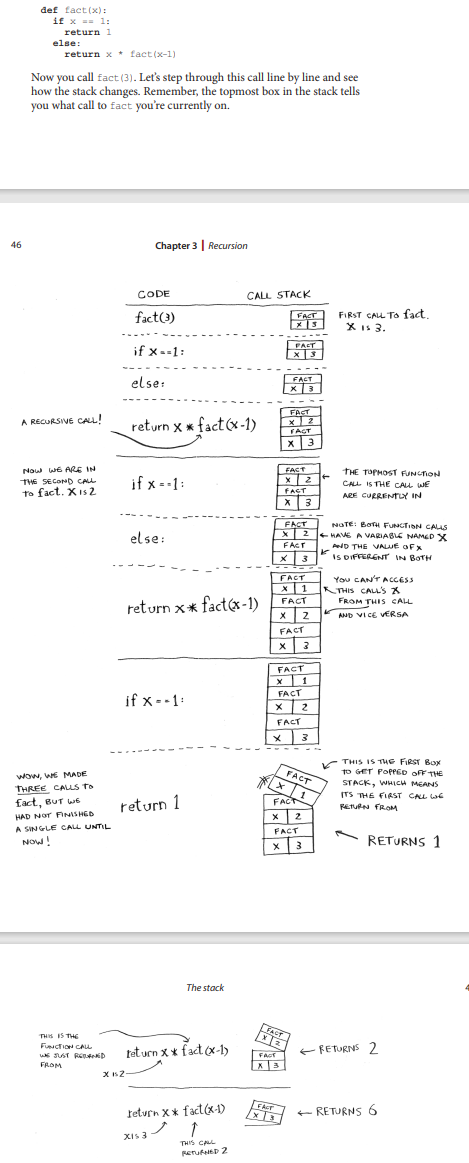 def fact(x):
if x == 1:
return 1
else:
return x * fact(x-1)
Now you call fact(3). Let's step through this call line by line and see
how the stack changes. Remember, the topmost box in the stack tells
you what call to fact you're currently on.
46
Chapter 3 | Recursion
CODE
CALL STACK
fact(3)
FACT
X 3
FIRST CALL TO fact.
X IS 3.
if x==1:
FACT
X 3
else:
FACT
X 3
A RECURSIVE CALL!
return x * fact(x-1)
FACT
X 2
FACT
X 3
NOW WE ARE IN
THE SECOND CALL
TO fact. X IS 2
if x==1:
FACT
X 2
FACT
X 3
THE TOPMOST FUNCTION
CALL IS THE CALL WE
ARE CURRENTLY IN
else:
FACT
X 2
FACT
X 3
NOTE: BOTH FUNCTION CALLS
HAVE A VARIABLE NAMED X
AND THE VALUE OF X
IS DIFFERENT IN BOTH
return x * fact(x-1)
FACT
X 1
FACT
X 2
FACT
X 3
YOU CAN'T ACCESS
THIS CALL'S X
FROM THIS CALL
AND VICE VERSA
if x==1:
FACT
X 1
FACT
X 2
FACT
X 3
WOW, WE MADE
THREE CALLS TO
fact, BUT WE
HAD NOT FINISHED
A SINGLE CALL UNTIL
NOW!
return 1
FACT
X 1
FACT
X 2
FACT
X 3
THIS IS THE FIRST BOX
TO GET POPPED OFF THE
STACK, WHICH MEANS
ITS THE FIRST CALL WE
RETURN FROM
RETURNS 1
The stack
4
THIS IS THE
FUNCTION CALL
WE JUST RETURNED
FROM
return x * fact(x-1)
X IS 2
FACT
X 2
FACT
X 3
RETURNS 2
return x * fact(x-1)
X IS 3
THIS CALL
RETURNED 2
FACT
X 3
RETURNS 6